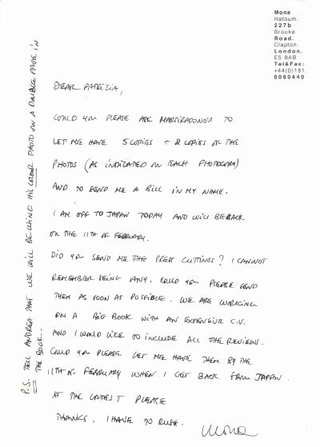 Mona
Hatoum
227b
Brooke
Road.
Clapton.
London.
E5 8AB
Tel&Fax:
+44(0)181
8060440
DEAR PATRIZIA,
COULD YOU PLEASE ASK MARTIRADONNA TO
LET ME HAVE 5 COPIES + 2 COPIES OF THE
PHOTOS (AS INDICATED ON EACH PHOTOGRAPH)
AND TO SEND ME A BILL IN MY NAME.
I AM OFF TO JAPAN TODAY AND WILL BE BACK
ON THE 11TH OF FEBRUARY.
DID YOU SEND ME THE PRESS CUTTINGS? I CANNOT
REMEMBER SEEING ANY. COULD YOU PLEASE SEND
THEM AS SOON AS POSSIBLE. WE ARE WORKING
ON A BIG BOOK WITH AN EXTENSIVE C.V.
AND I WOULD LIKE TO INCLUDE ALL THE REVIEWS.
COULD YOU PLEASE LET ME HAVE THEM BY THE
11TH OF FEBRUARY WHEN I GET BACK FROM JAPAN
AT THE LATEST PLEASE
THANKS. I HAVE TO RUSH.
Mona
P.S. TELL ANDREA THAT WE WILL BE USING HIS COLOUR PHOTO ON A DOUBLE PAGE IN
THE BOOK.